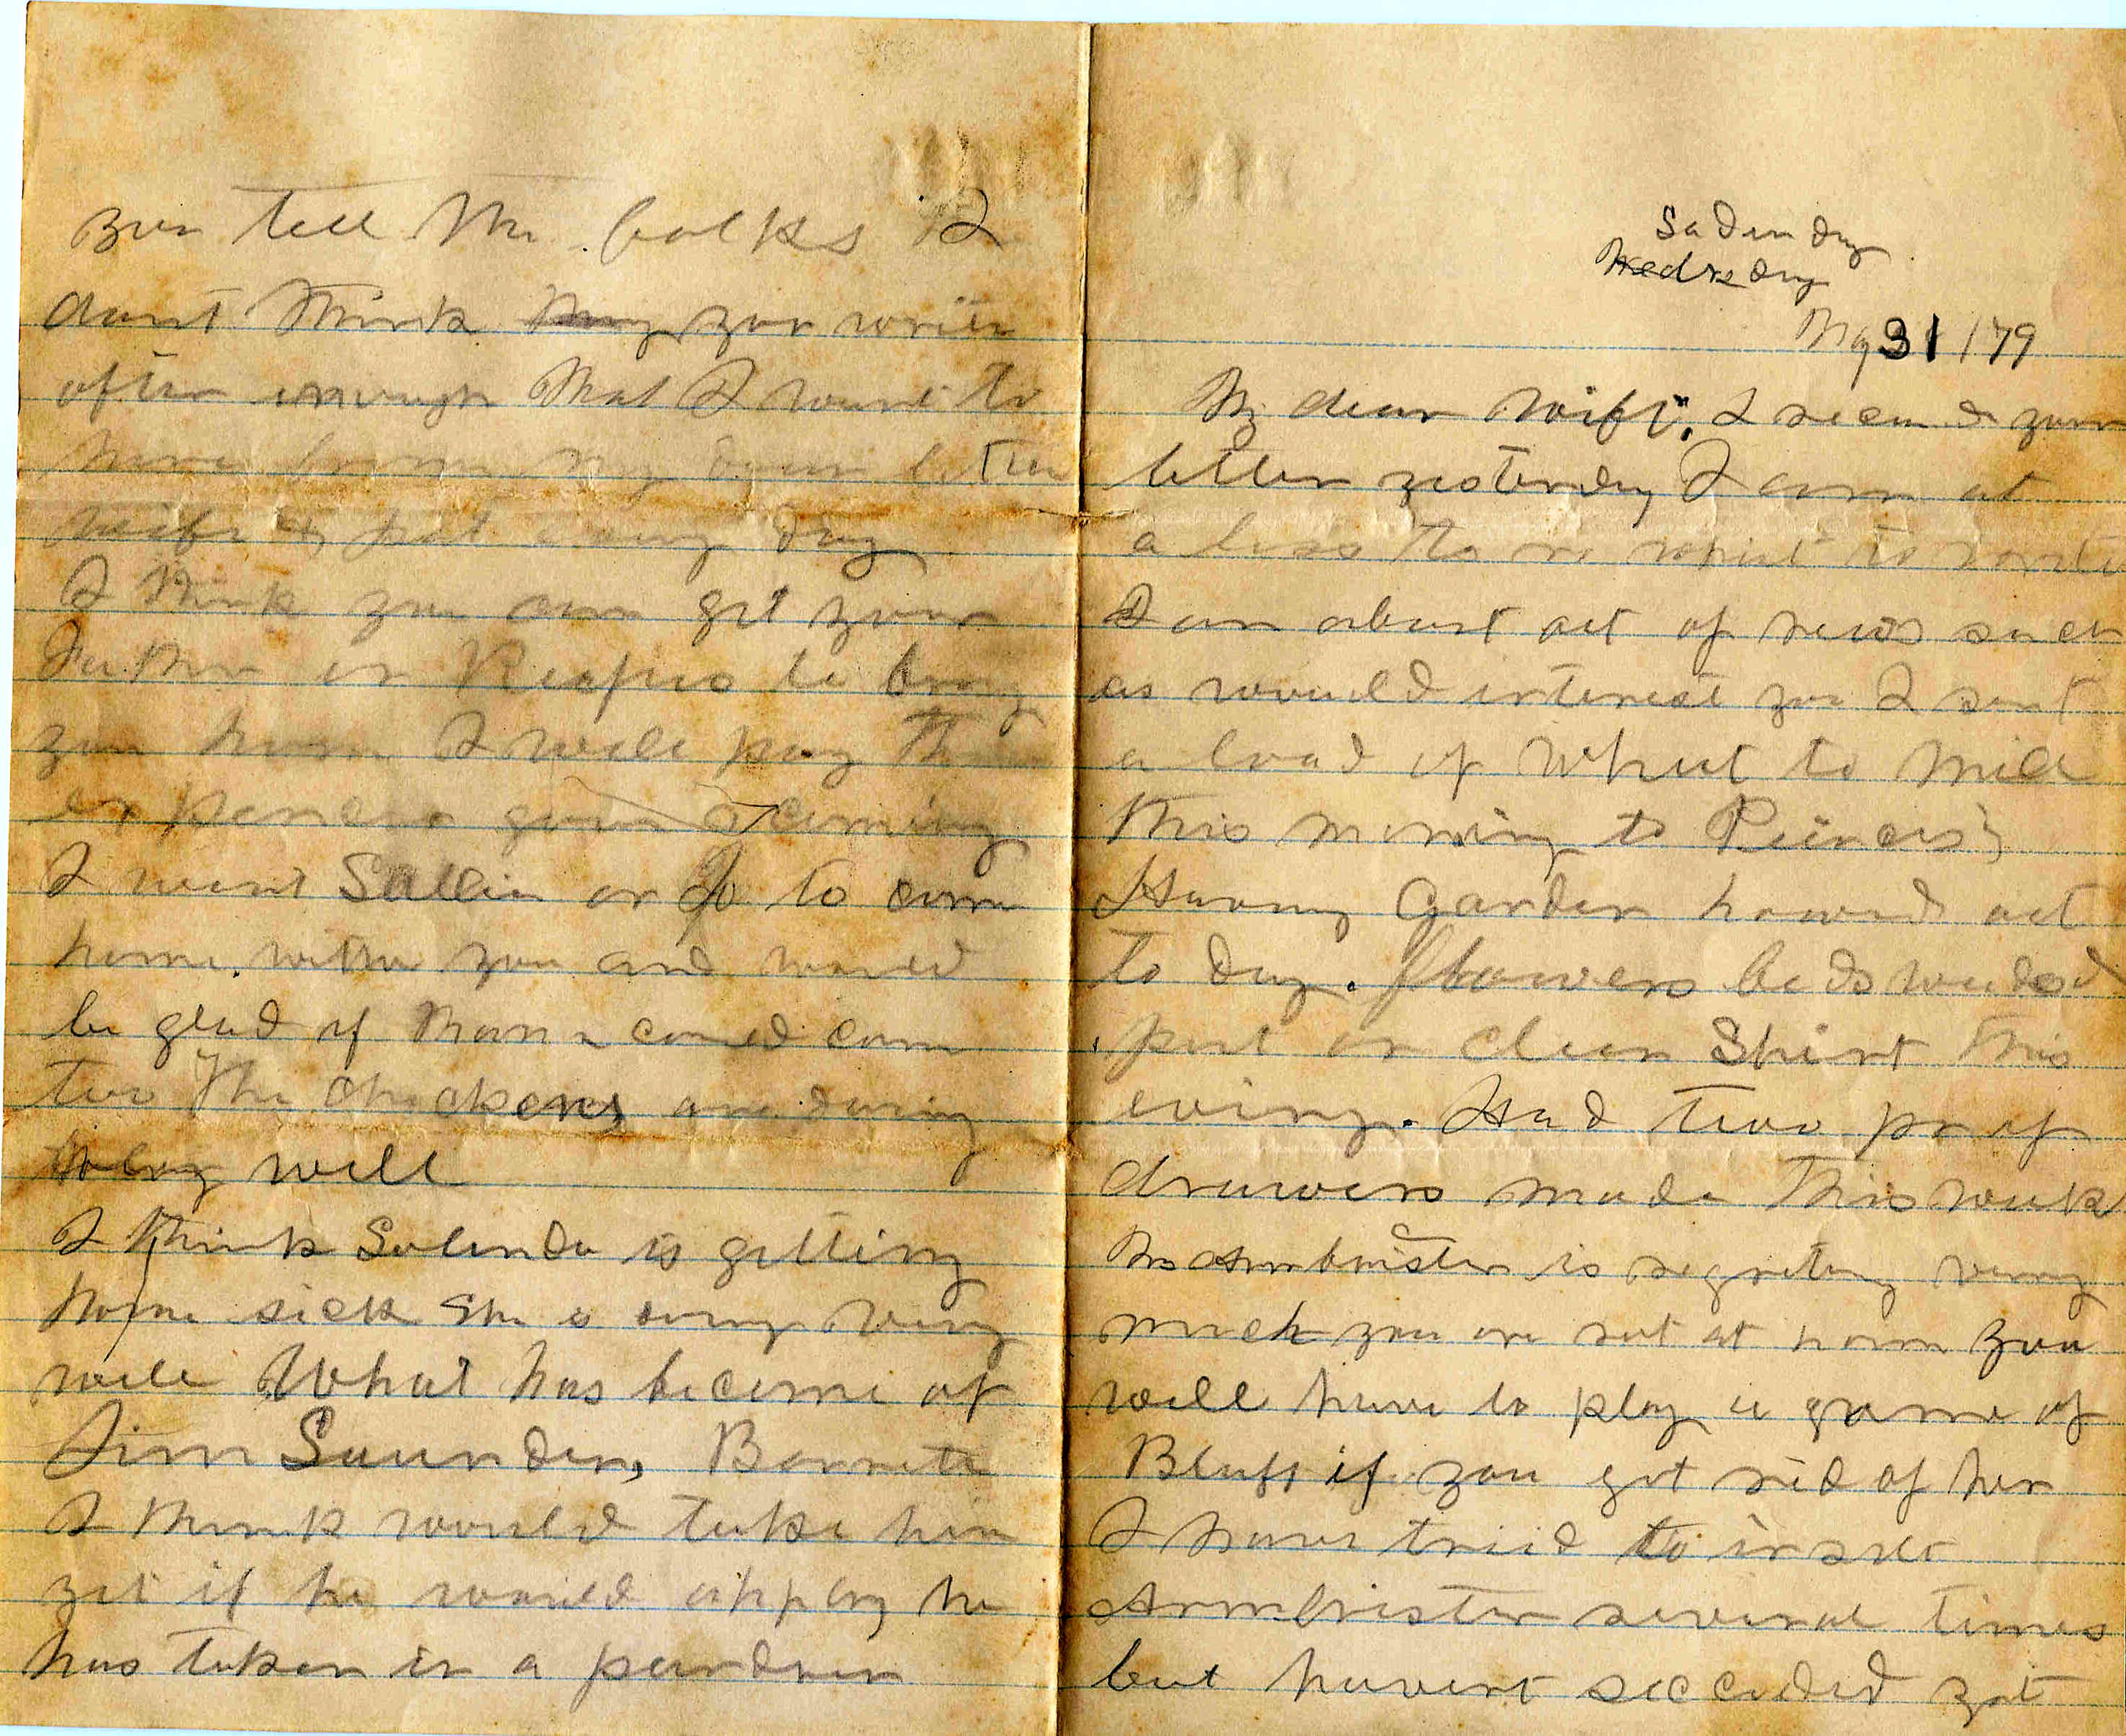 Saturday
Wedneday
May 31 / 79
My dear Wife. I receivd your
letter yesterday I am at
a loss to no what to write
I am about out of news such
as would interest you I sent
a load of Wheat to Mill
this morning to
Having Garden howed out
to day. flowers beds weeded
put on clean Shirt this
eving. Had two pr of
drawers made this week
Mrs Armbrister is regreting very
much you are not at home you
will have to play a game of
Bluff if you get rid of her
I have tried to insult
Armbrister several times
but havent succeded yet
you tell the folks I
dont think you write
often enough that I want to
here from my dear
wife every day
I think you can get your
Father or to bring
you home I will pay the
expenses going & coming
I want Sallie or Jo to come
home with you and would
be glad if Mama could come
two The chickens are doing
well
I think Solinda is getting
home sick She is doing very
well What has become of
Jim Saunders, Barnett
I think would take him
yet if he would apply he
has taken in a pardner